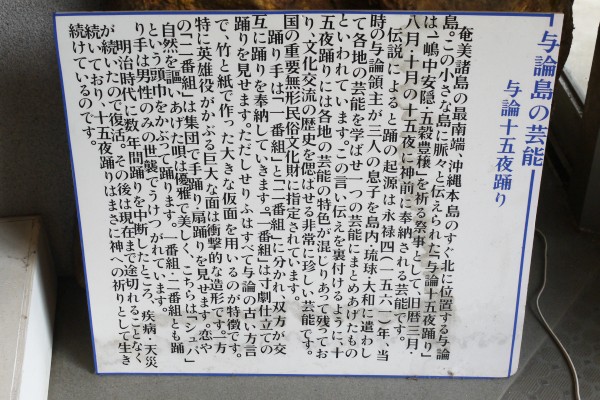 「与論島の芸能
与論十五夜踊り
奄美諸島の最南端、沖縄本島のすぐ北に位置する与論
島。この小さな島に脈々と伝えられた「与論十五夜踊り」
は、「嶋中安隠・五穀豊穣」を祈る祭事として、旧暦三月・
八月・十月の十五夜に神前に奉納される芸能です。
伝説によると踊の起源は永禄四(一五六一)年、当
時の与論領主が三人の息子を島内、琉球、大和に遣わし
て各地の芸能を学ばせ、一つの芸能にまとめあげたもの
といわれています。この言い伝えを裏付けるように、十
五夜踊りには各地の芸能の特色が混じりあって残ってお
り、文化交流の歴史を偲ばせる非常に珍しい芸能です。
国の重要無形民俗文化財に指定されています。
踊り手は「一番組」と「二番組」に分かれ、双方が交
互に踊りを奉納していきます。「一番組」は寸劇仕立ての
踊りを見せます。ただしせりふはすべて与論の古い方言
で、竹と紙で作った大きな仮面を用いるのが特徴です。
特に英雄役がかぶる巨大な面は衝撃的な造形です。一方
の「二番組」は集団で手踊り、扇踊りを見せます。恋や
自然を謳いあげた唄は優雅で美しく、こちらは「シュパ」
という頭巾をかぶって踊ります。一番組、二番組とも踊
り手は男性のみの世襲でうけつがれています。
明治時代に数年間踊りを中断したところ、疾病・天災
が続いたので復活。その後は現在まで途切れることなく
続いており、十五夜踊りはまさに神への祈りとして生き
続けているのです。